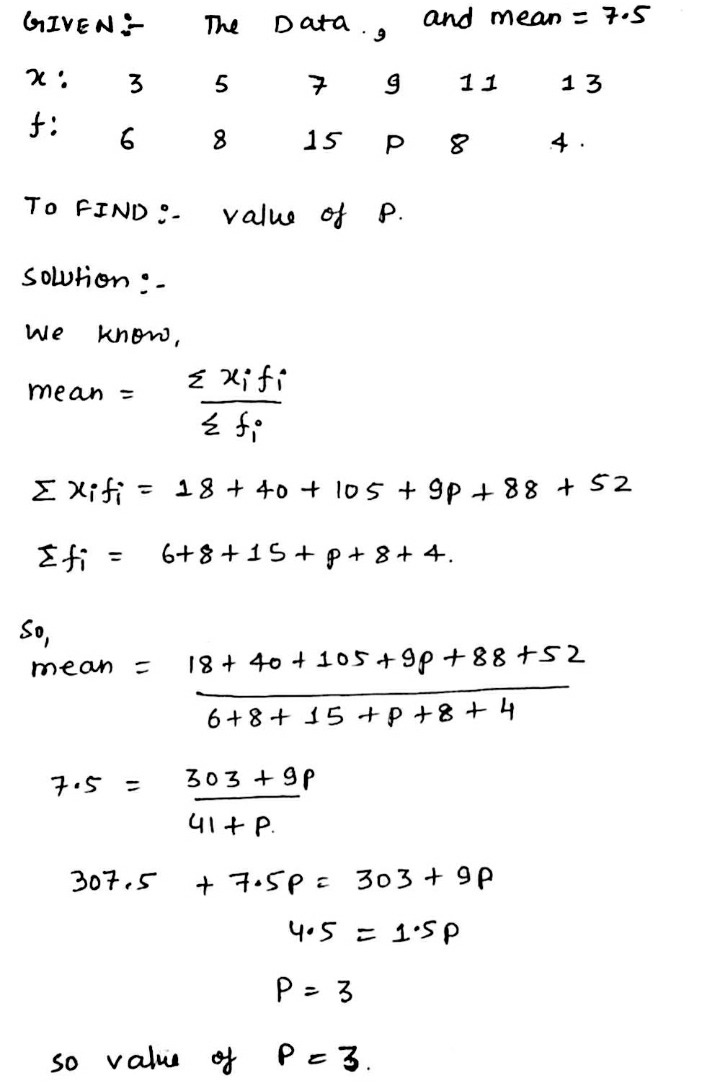 GIVEN :- The Data., and mean = 7.5
x : 3 5 7 9 11 13
f : 6 8 15 P 8 4 .
TO FIND :- value of P.
Solution :-
We know,
mean = Σ xi fi / Σ fi
Σ xi fi = 18 + 40 + 105 + 9p + 88 + 52
Σ fi = 6+8+15+p+8+4.
So,
mean = 18 + 40 + 105 + 9p + 88 + 52 / 6+8+15+p+8+4
7.5 = 303 + 9p / 41 + P.
307.5 + 7.5p = 303 + 9p
4.5 = 1.5p
P = 3
so value of P = 3.